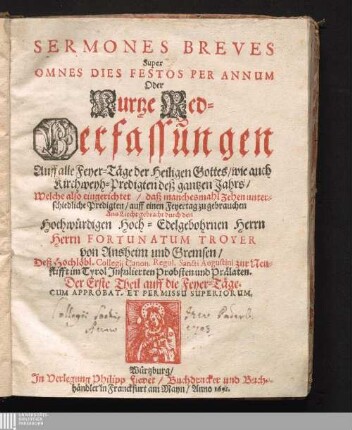 SERMONES BREVES
Super
OMNES DIES FESTOS PER ANNUM
Oder
Kurtze Red-
Verfassungen
Auff alle Feyer-Täge der Heiligen Gottes/ wie auch
Kirchweyh-Predigten deß gantzen Jahrs/
Welche also eingerichtet / daß manchesmahl Zehen unter-
schiedliche Predigten / auff einen Feyertag zu gebrauchen
Ans Liecht gebracht durch den
Hochwürdigen Hoch-Edelgebohrnen Herrn
Herrn FORTUNATUM TROYER
von Ausheim und Gremsen /
Deß Hochlöbl. Collegii Canon. Regul. Sancti Augustini zur Neu-
stifft im Tyrol Infulierten Probsten und Prälaten.
Der Erste Theil auff die Feyer-Täge.
CUM APPROBAT. ET PERMISSU SUPERIORUM.
Collegii Societ.
Anno 1703
Würtzburg/
In Verlegung Philipp Fiever / Buchdrucker und Buch-
händler in Franckfurt am Mayn / Anno